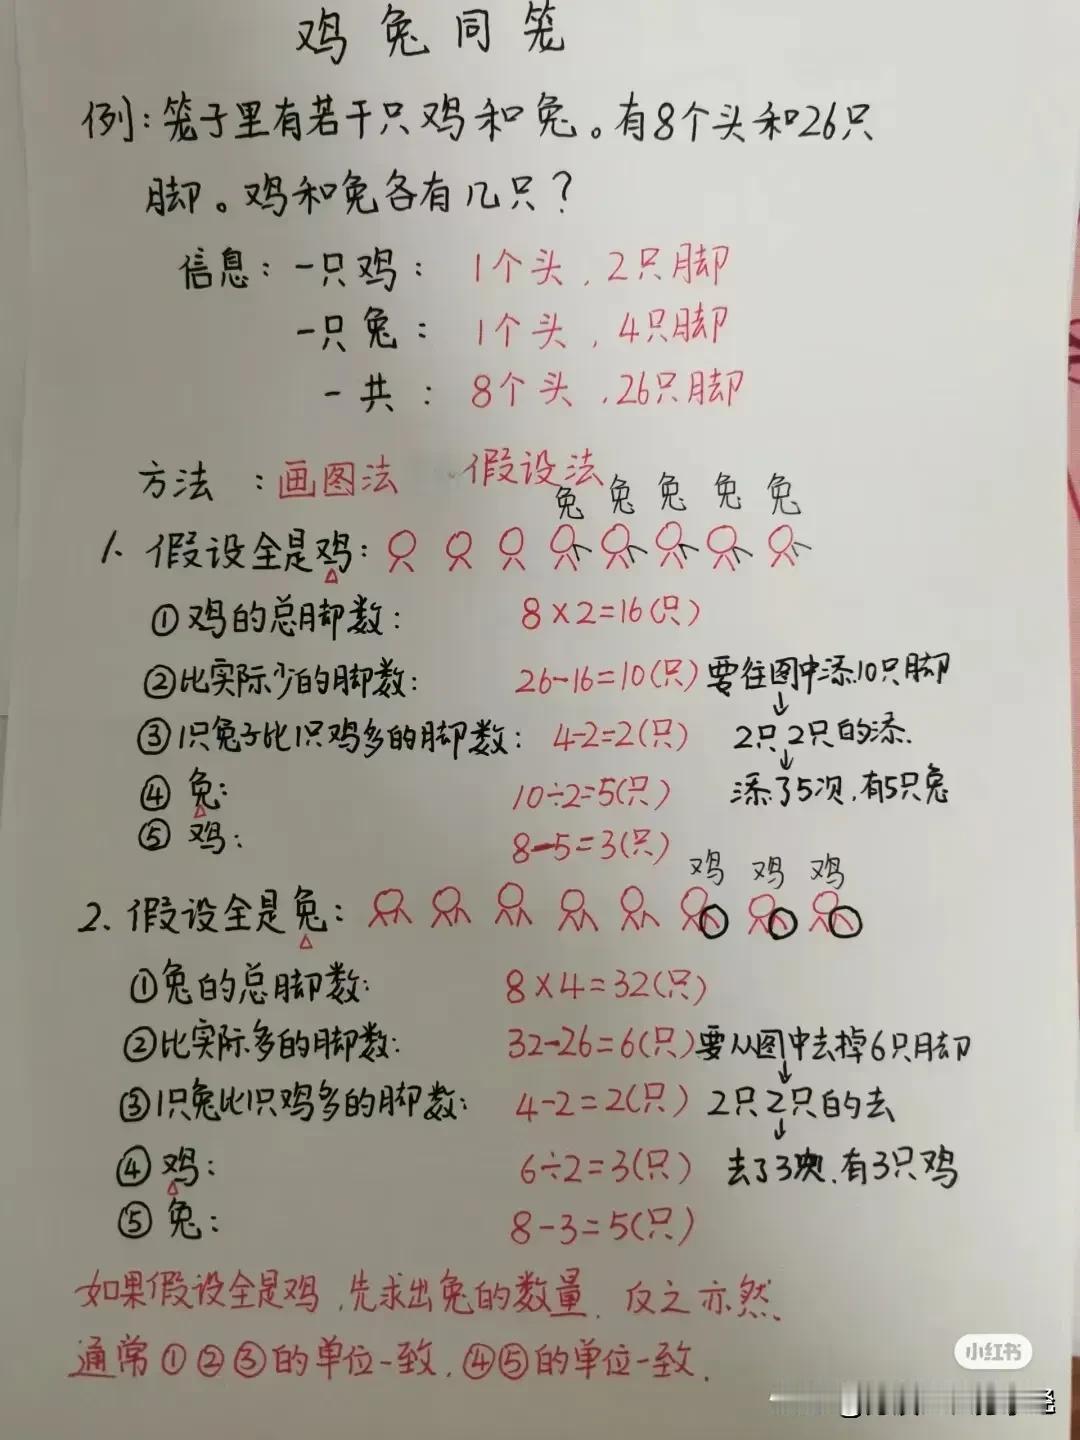 鸡兔同笼
例:笼子里有若干只鸡和兔。有8个头和26只
脚。鸡和兔各有几只?
信息:一只鸡: 1个头,2只脚
一只兔: 1个头,4只脚
一共: 8个头,26只脚
方法:画图法 假设法
兔 兔 兔 兔 兔
1、假设全是鸡:
①鸡的总脚数: 8×2=16(只)
②比实际少的脚数: 26-16=10(只) 要往图中添10只脚
↓
③1只兔子比1只鸡多的脚数: 4-2=2(只) 2只2只的添.
↓
④兔: 10÷2=5(只) 添了5次,有5只兔
⑤鸡: 8-5=3(只)
鸡 鸡 鸡
2、假设全是兔:
①兔的总脚数: 8×4=32(只)
②比实际多的脚数: 32-26=6(只) 要从图中去掉6只脚
↓
③1只兔比1只鸡多的脚数: 4-2=2(只) 2只2只的去
↓
④鸡: 6÷2=3(只) 去了3次,有3只鸡
⑤兔: 8-3=5(只)
如果假设全是鸡,先求出兔的数量,反之亦然、
通常①②③的单位一致,④⑤的单位一致.
小红书